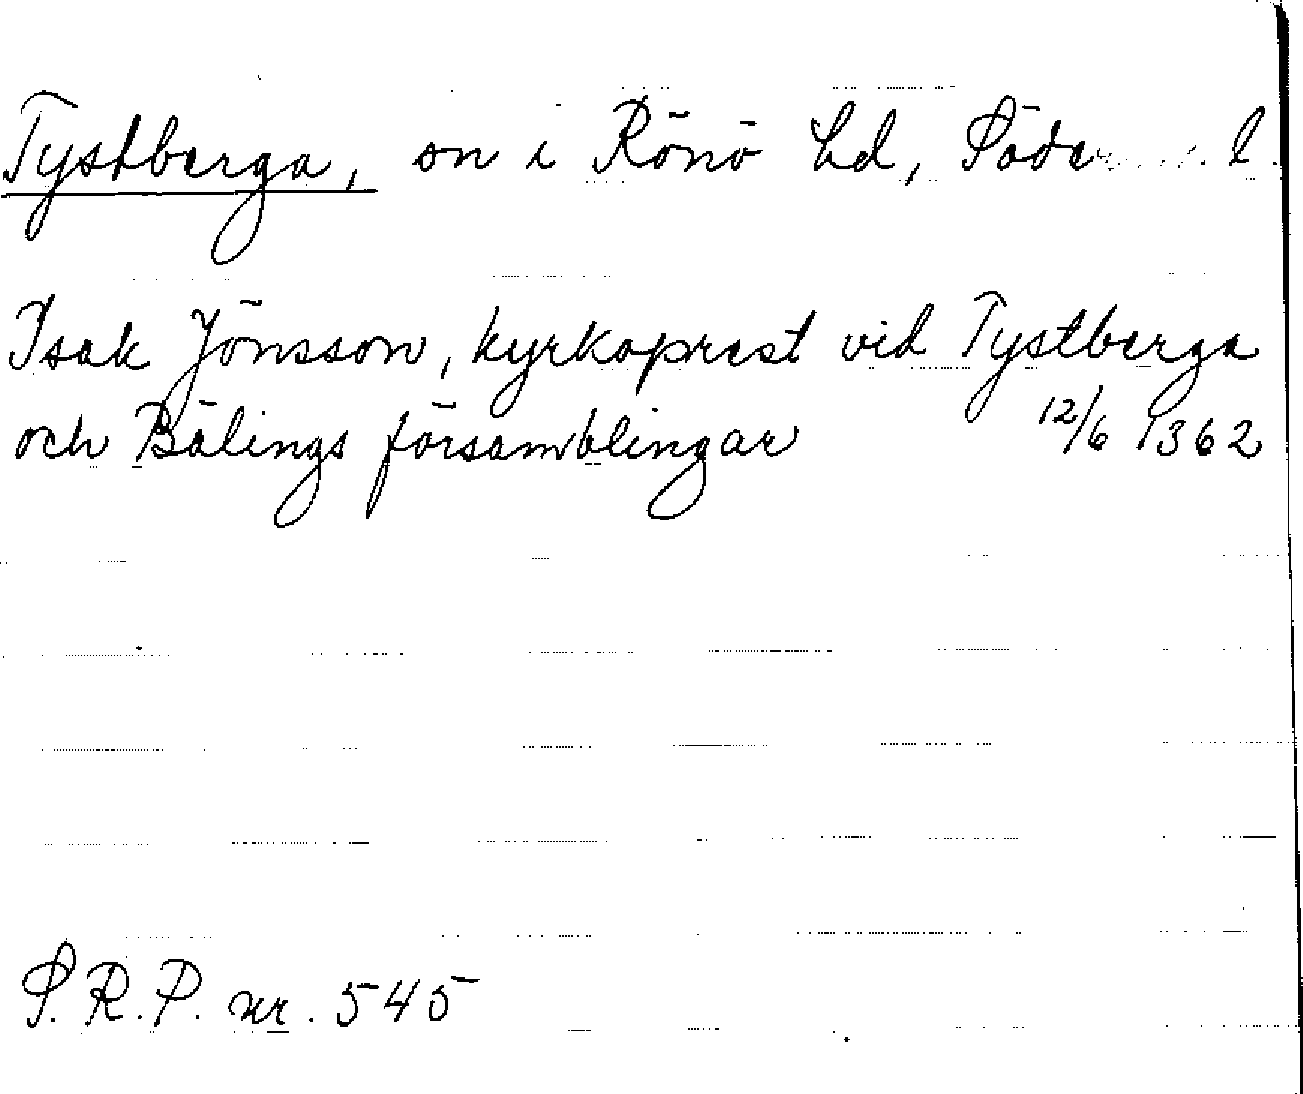 Tystberga, sn i Rönö hd, Söderm. l.
Isak Jönsson, kyrkoprest vid Tystberga
och Bälings församblingar 12/6 1362
S.R.P. nr. 545